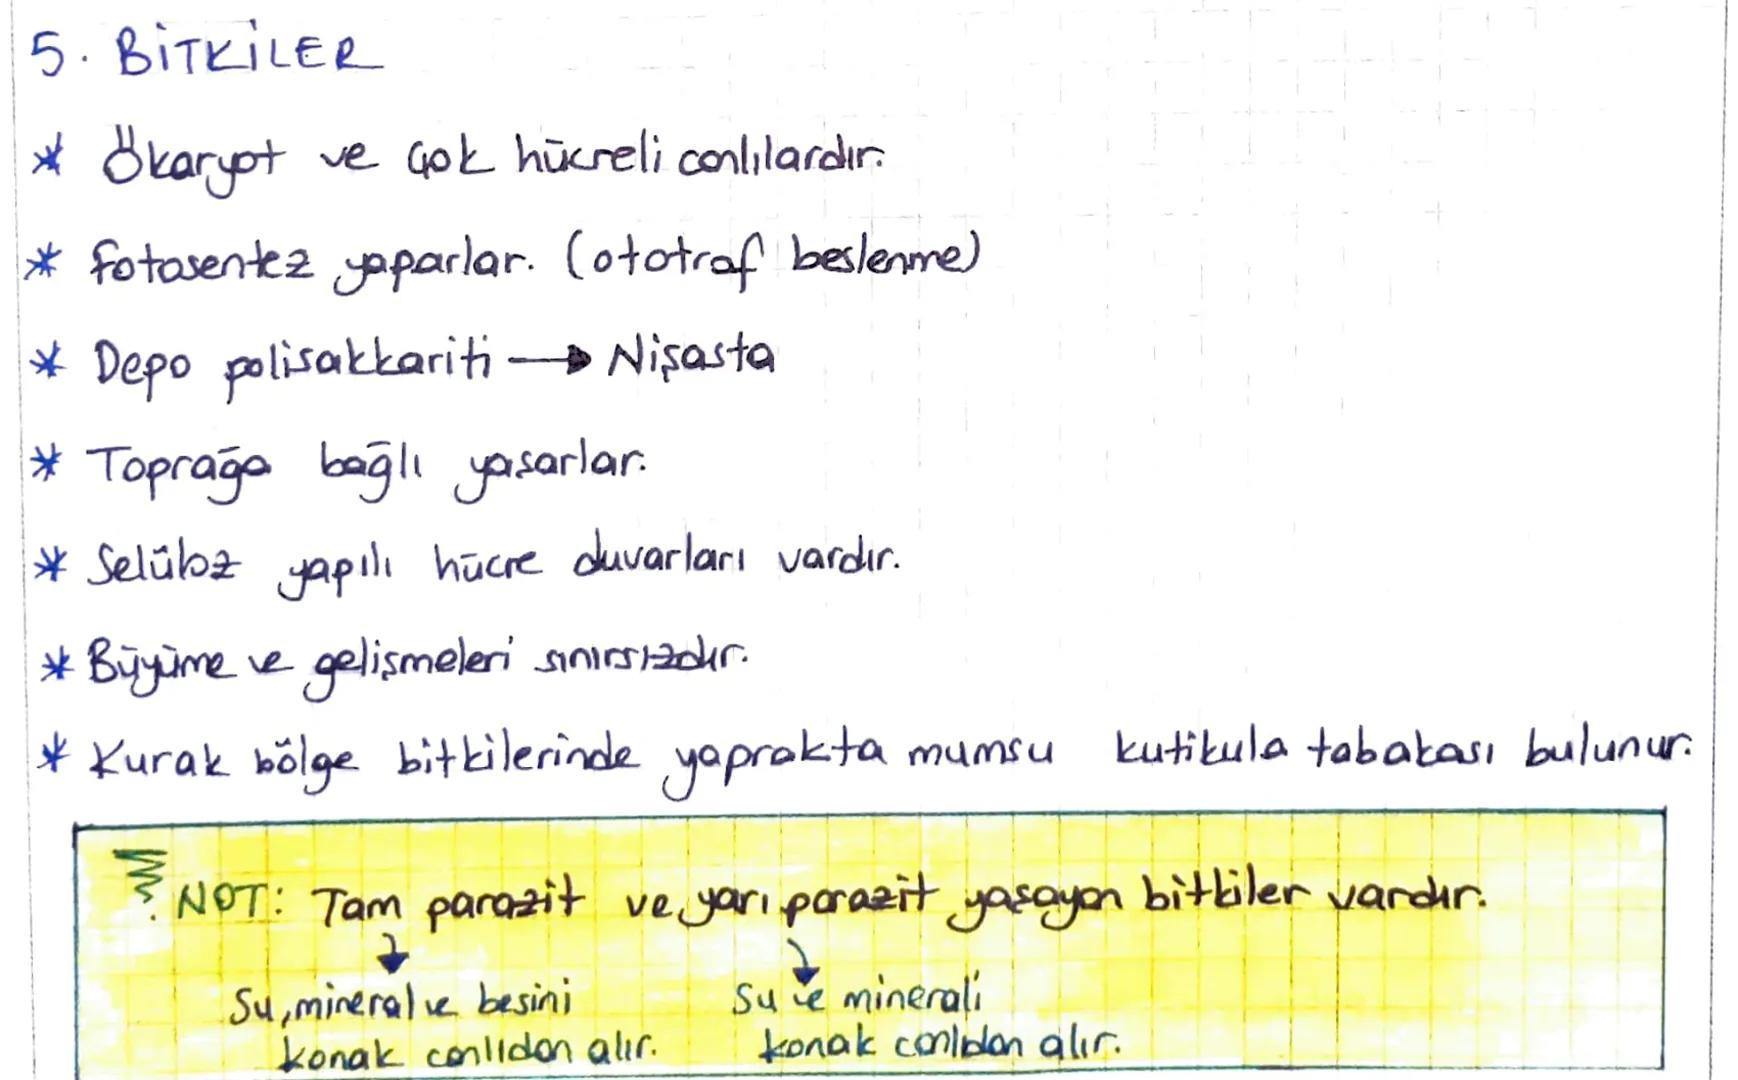 5. BİTKİLER
* Ökaryot ve çok hücreli canlılardır.
* fotosentez yaparlar. (ototraf beslenme)
* Depo polisakkariti → Nişasta
* Toprağa bağlı yaşarlar.
* Selüloz yapılı hücre duvarları vardır.
* Büyüme ve gelişmeleri sınırsızdır.
* Kurak bölge bitkilerinde yaprakta mumsu kutikula tabakası bulunur.
NOT: Tam parazit ve yarı parazit yaşayan bitkiler vardır.
Su, mineral ve besini Su ve minerali
konak canlıdan alır. konak canlıdan alır.